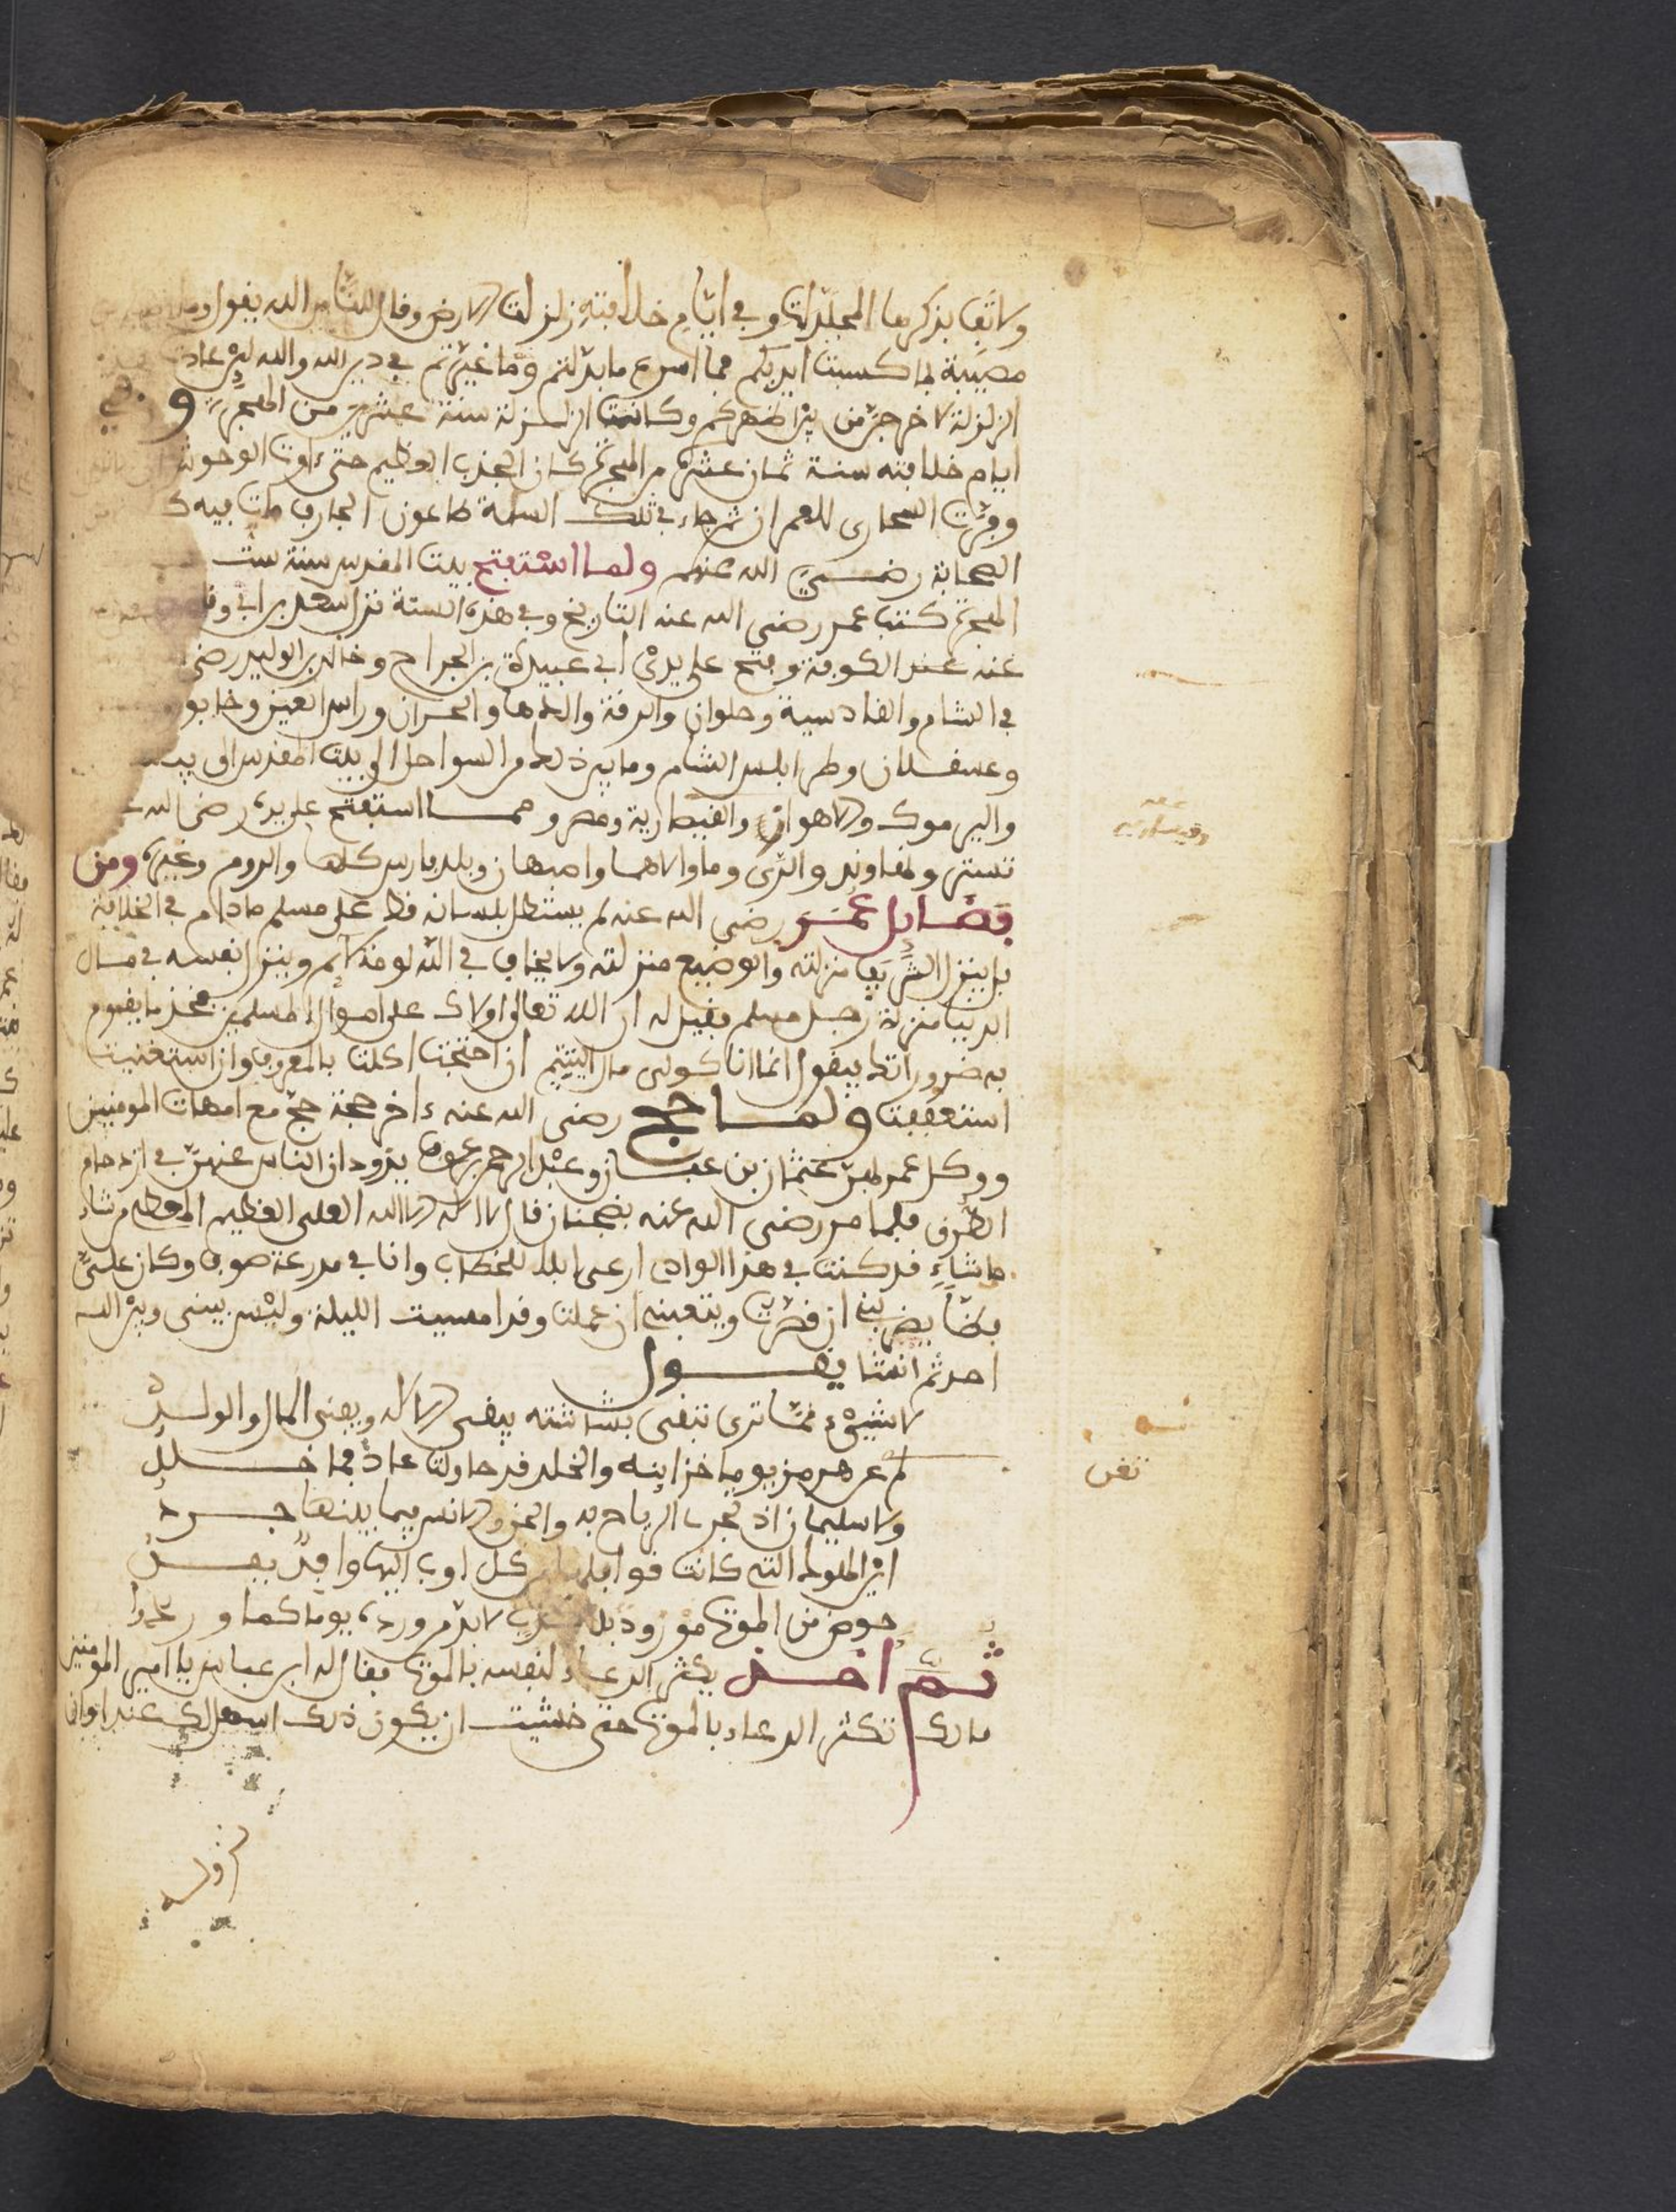 ولا تفي بذكرها المجلدات وفي ايام خلافته زلزلت الارض وقال للناس الله يقول وما
مصيبة بما كسبت ايديكم فما اسرع ما بدلتم وما غيرتم في دين الله والله لين عادت
الزلزلة لاخرجن من بين اظهركم وكانت الزلزلة سنة عشرين من الهجرة وفي
ايام خلافته سنة ثمان عشرة من الهجرة كان الجذب العظيم حتى اوت الوحوش
وفرت الصحارى للعمران ثم جاء في تلك السنة طاعون الجارف مات فيه
الصحابة رضي الله عنهم ولما استفتح بيت المقدس سنة ست
الهجرة كتب عمر رضي الله عنه التاريخ وفي هذه السنة نزل سعد بن ابي وقاص
عنه عند الكوفة وفتح على يدي ابي عبيدة بن الجراح وخالد بن الوليد رضي
في الشام والقادسية وحلوان والرقة والرها والحران وراس العين وخابو
وعسقلان وطرابلس الشام وما بين ذلك من السواحل الى بيت المقدس الى
واليرموك والاهواز والقيصارية ومصر ومما استفتح على يده رضي الله
تستر ونهاوند والري وما والاهما واصبهان وبلد فارس كلها والروم وغيره ومن
فضايل عمر رضي الله عنه لم يستطل بلسانه قط على مسلم ما دام في الخلافة
بل ينزل الشريف منزلته والوضيع منزلته ولا يخاف في الله لومة لايم وينزل نفسه في مال
الدنيا منزلة رجل مسلم فقيل له ان الله تعالى ولاك على اموال المسلمين فخذ ما يقوم
به ضروراتك فيقول انما انا كولي مال اليتيم ان احتجت اكلت بالمعروف وان استغنيت
استعففت ولما حج رضي الله عنه ءاخر حجة حج مع امهات المومنين
ووكل عمر لهن عثمان بن عفان وعبد الرحمن بن عوف يذودان الناس عنهن في ازدحام
الطرق فلما مر رضي الله عنه بضجنان قال لا اله الا الله العلي العظيم المعطي من شاء
ما شاء قد كنت في هذا الوادي ارعى ابلا للخطاب وانا في مدرعة صوف وكان علي
فظا يضربني ان قصرت ويتعبني ان عملت وقد امسيت الليلة وليس بيني وبين الله
احد ثم انشا يقول
لا شيء مما ترى تبقى بشاشته يبقى الاله ويفنى المال والولد
لم عن هرمز يوما خزاينه والخلد قد حاولت عاد فما خلد
ولا سليمان اذ تجري الرياح به والجن والانس فيما بينها جرد
اين الملوك التي كانت قوافلها من كل اوب اليها وافد يفد
حوض من الموت مورود بلا كذب لا بد من ورده يوما كما وردوا
ثم اخذ يكثر الدعاء لنفسه بالموت فقال له ابن عباس يا امير المومنين
ما لك تكثر الدعاء بالموت حتى خشيت ان يكون ذلك اسهل لك عند اوان
وقيسارية
تغن